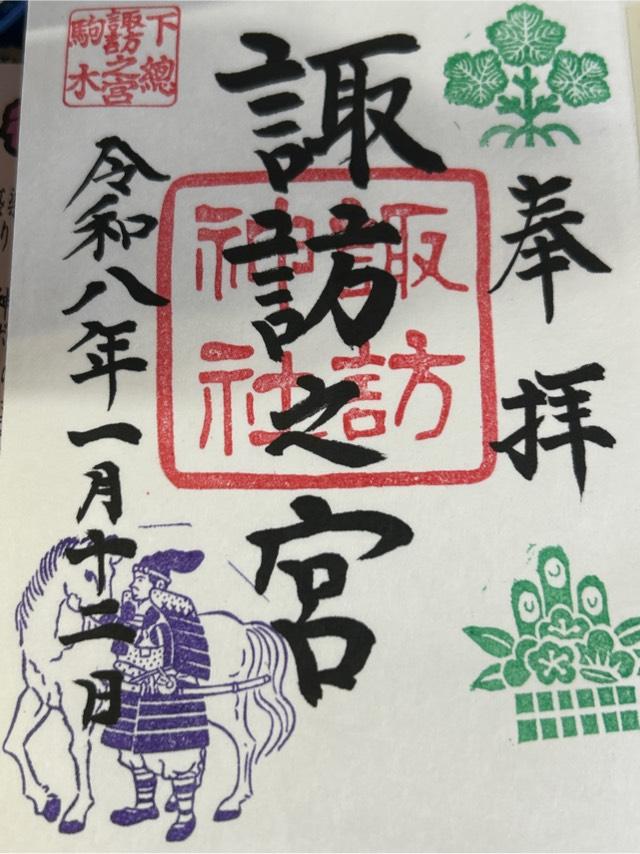 奉拝
諏訪之宮
諏訪
神社
下總
諏訪之宮
駒木
令和八年一月十二日